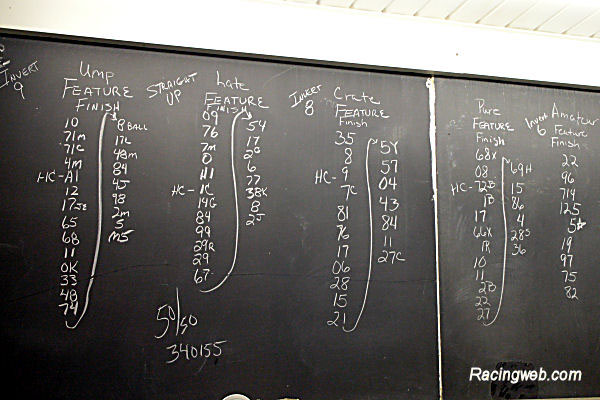 INVERT
9
Ump
FEATURE
FINISH
10
71m
71c
4m
HC-A1
12
17JE
65
6B
11
0K
33
4B
74
8 BALL
17c
48m
84
45
98
2m
5
m5
STRAIGHT
UP
Late
FEATURE
FINISH
09
76
7m
0
H1
HC- 1C
14G
84
99
29R
29
67
54
17
6
77
38K
8
50/50
340155
INVERT
8
Crate
FEATURE
Finish
35
8
HC- 9
7C
81
76
17
06
28
15
21
5Y
57
04
43
84
11
27C
Pure
FEATURE
Finish
68x
08
HC-72B
1B
17
66x
1R
10
11
2B
22
27
69H
15
86
4
28S
36
Invert
6
Amateur
Feature
Finish
22
96
714
125
5☆
19
97
75
82
Racingweb.com